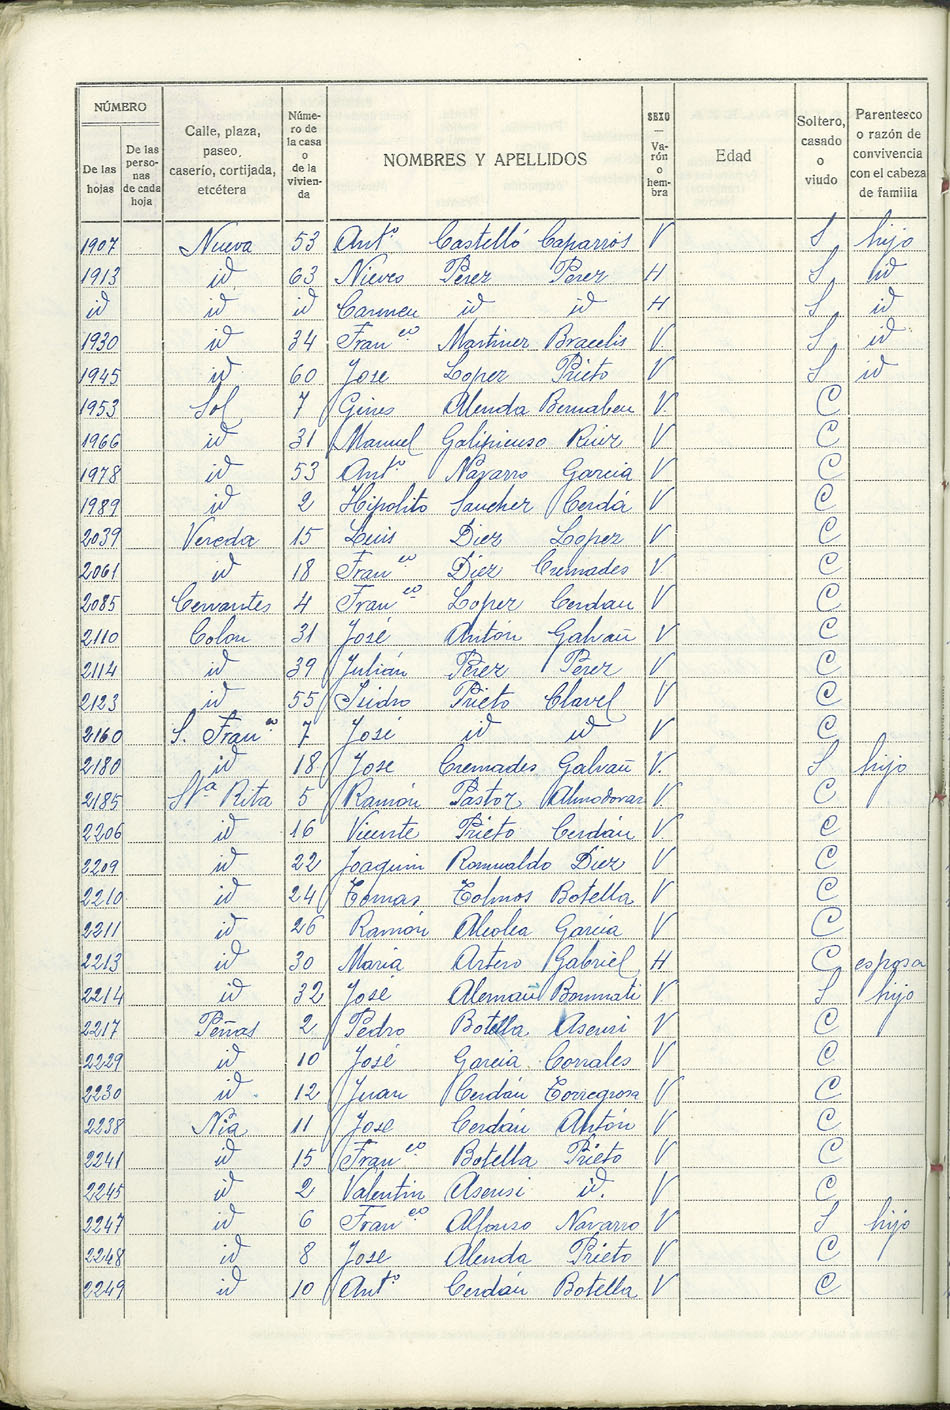 NÚMERO
De las hojas
De las perso- nas de cada hoja
Calle, plaza, paseo, caserío, cortijada, etcétera
Núme- ro de la casa o de la vivien- da
NOMBRES Y APELLIDOS
SEXO — Va- rón o hem- bra
Edad
Soltero, casado o viudo
Parentesco o razón de convivencia con el cabeza de familia
1907 Nueva 53 Antº Castelló Caparrós V S hijo
1913 id 63 Nieves Perez Perez H S id
id id id Carmen id id H S id
1930 id 34 Franco Martinez Bracelis V. S id
1945 id 60 Jose Lopez Prieto V S id
1953 Sol 7 Gines Alenda Bernabeu V. C
1966 id 31 Manuel Galipienso Ruiz V C
1978 id 53 Antº Navarro Garcia V C
1989 id 2 Hipolito Sanchez Cerdá V C
2039 Vereda 15 Luis Diez Lopez V C
2061 id 18 Franco Diez Cremades V C
2085 Cervantes 4 Franco Lopez Cerdan V C
2110 Colon 31 José Antón Galvañ V C
2114 id 39 Julián Pérez Pérez V C
2123 id 55 Isidro Prieto Clavel V C
2160 S. Franco 7 José id id V C
2180 id 18 Jose Cremades Galvañ V. S hijo
2185 Sta Rita 5 Ramón Pastor Almodovar V. C
2206 id 16 Vicente Prieto Cerdán V. C
2209 id 22 Joaquin Romualdo Diez V C
2210 id 24 Tomas Tolmos Botella V C
2211 id 26 Ramón Alcolea Garcia V C
2213 id 30 Maria Artero Gabriel H C esposa
2214 id 32 José Alemañ Bonmati V. S hijo
2217 Peñas 2 Pedro Botella Asensi V C
2229 id 10 José Garcia Corrales V C
2230 id 12 Juan Cerdán Torregrosa V C
2238 Nía 11 Jose Cerdán Antón V C
2241 id 15 Franco Botella Prieto V C
2245 id 2 Valentin Asensi id. V C
2247 id 6 Franco Alfonso Navarro V S hijo
2248 id 8 Jose Alenda Prieto V C
2249 id 10 Antº Cerdán Botella V C